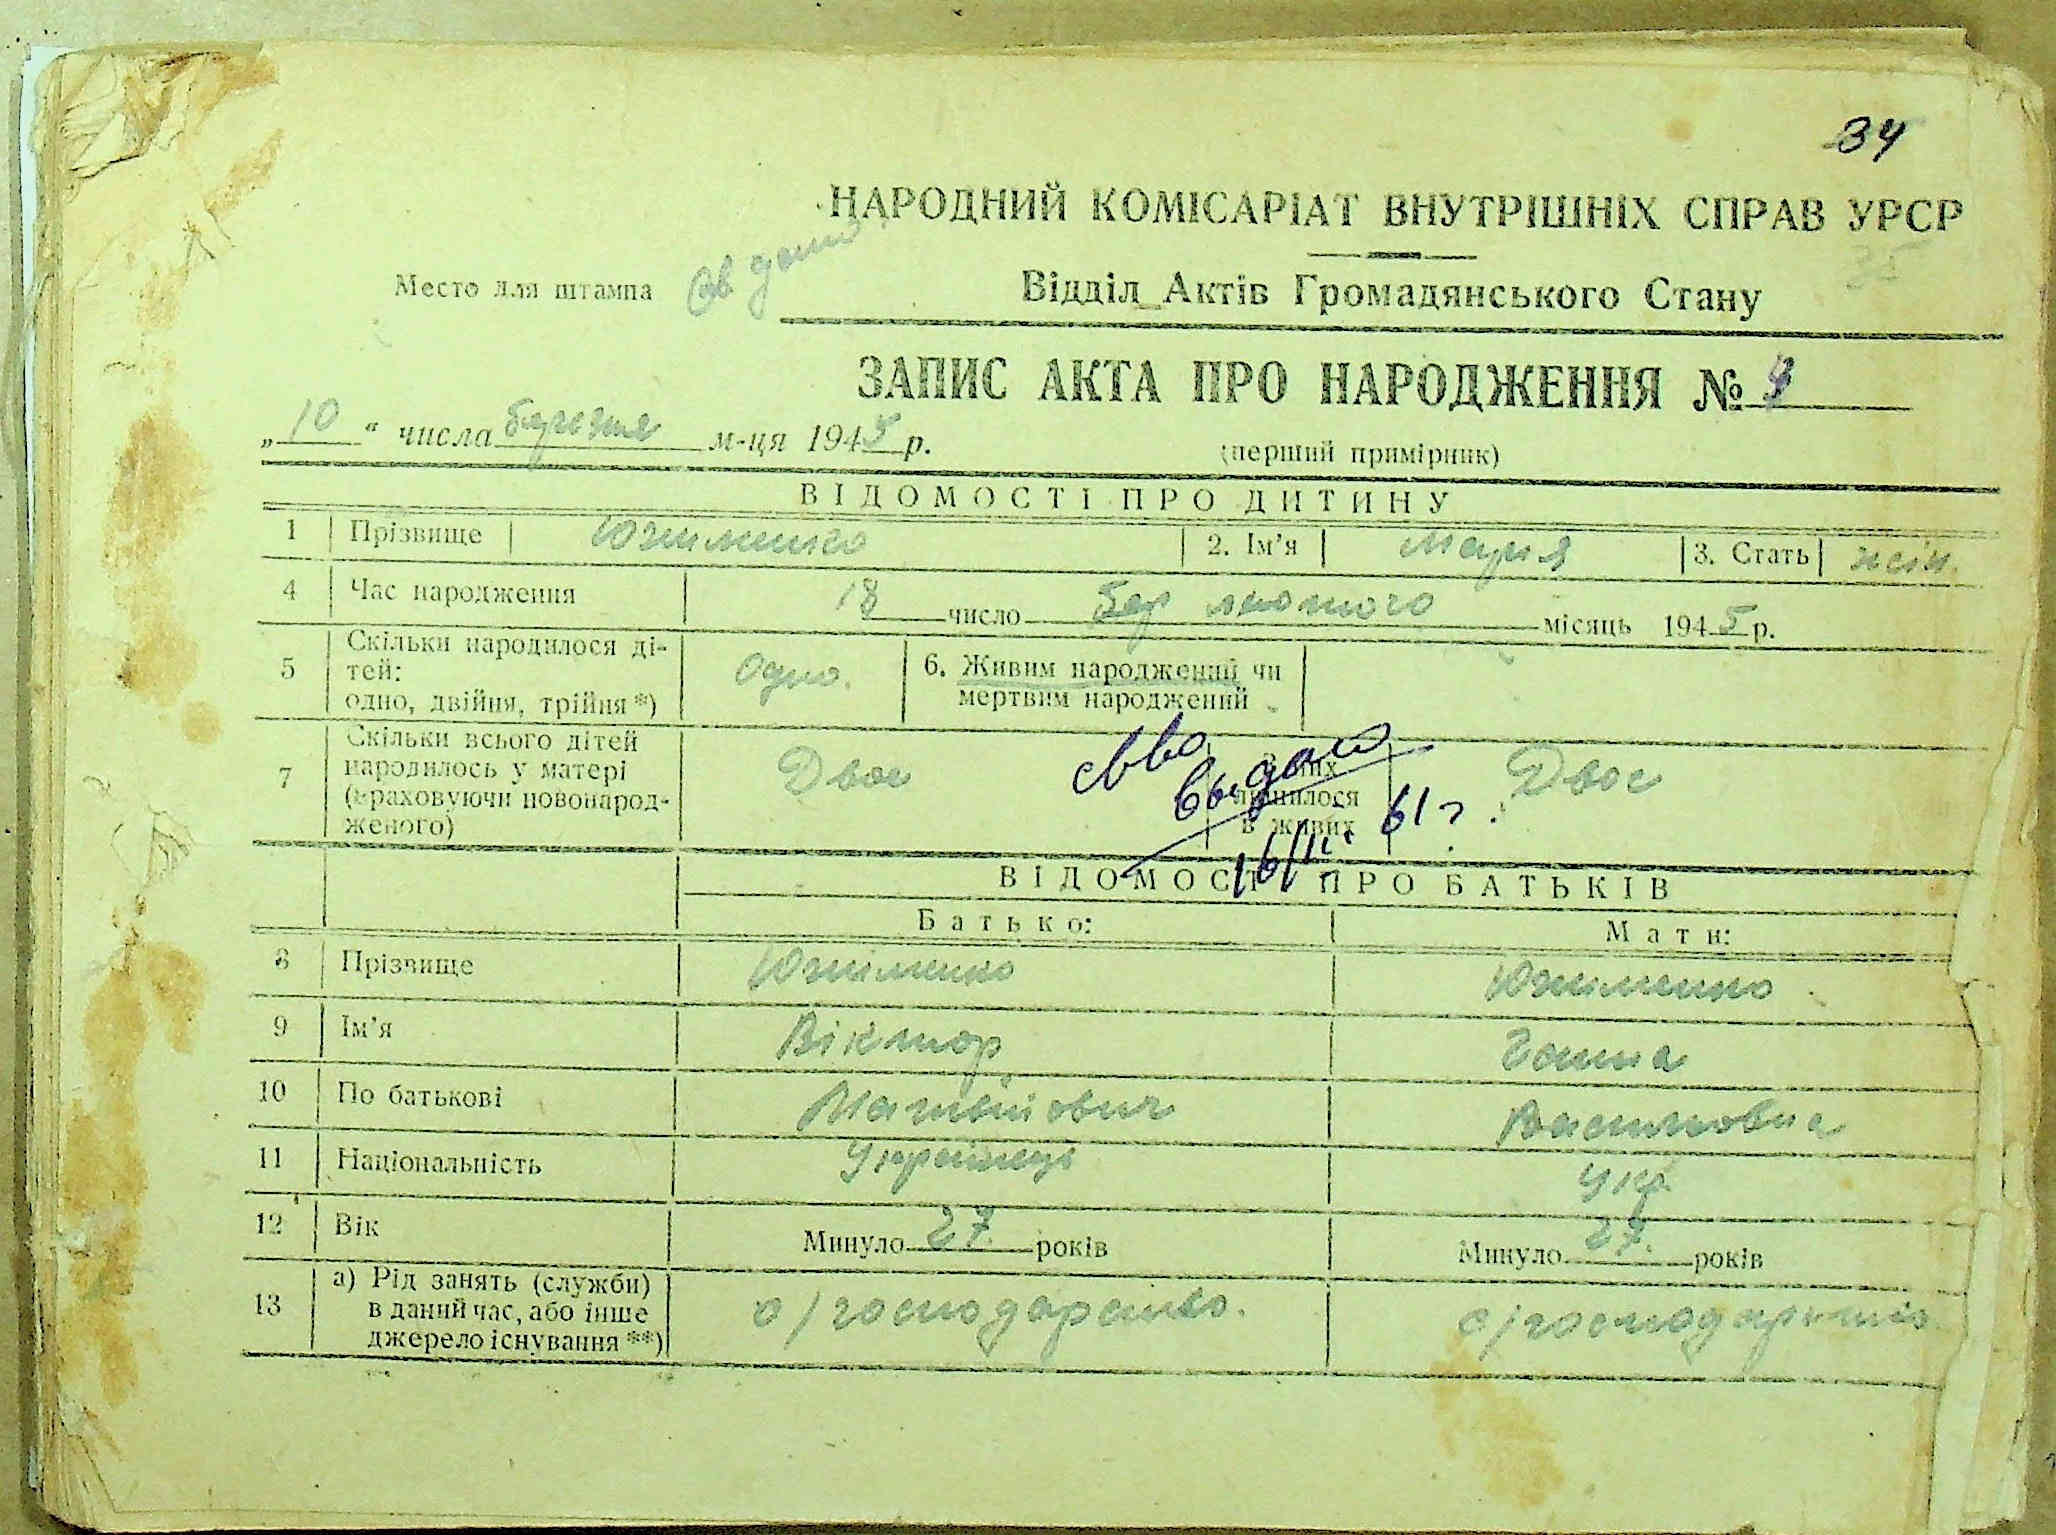 34
НАРОДНИЙ КОМІСАРІАТ ВНУТРІШНІХ СПРАВ УРСР
35
Место для штампа
Відділ Актів Громадянського Стану
ЗАПИС АКТА ПРО НАРОДЖЕННЯ №
„10“ числа березня м-ця 1945 р.
(перший примірник)
ВІДОМОСТІ ПРО ДИТИНУ
1 Прізвище Юхименко 2. Ім'я Марія 3. Стать жін.
4 Час народження 18 число Бер лютого місяць 1945 р.
5 Скільки народилося ді-
тей:
одно, двійня, трійня*) Одно. 6. Живим народжений чи
мертвим народжений
7 Скільки всього дітей
народилось у матері
(враховуючи новонарод-
женого) Двоє З них
лишилося
в живих Двоє
св-во
выдано
16/III 61 г.
ВІДОМОСТІ ПРО БАТЬКІВ
Батько: Мати:
8 Прізвище Юхименко Юхименко
9 Ім'я Віктор Ганна
10 По батькові Матвійович Василовна
11 Національність Українець Укр.
12 Вік Минуло 27. років Минуло 27. років
13 а) Рід занять (служби)
в даний час, або інше
джерело існування**) с/господарство. с/господарство.